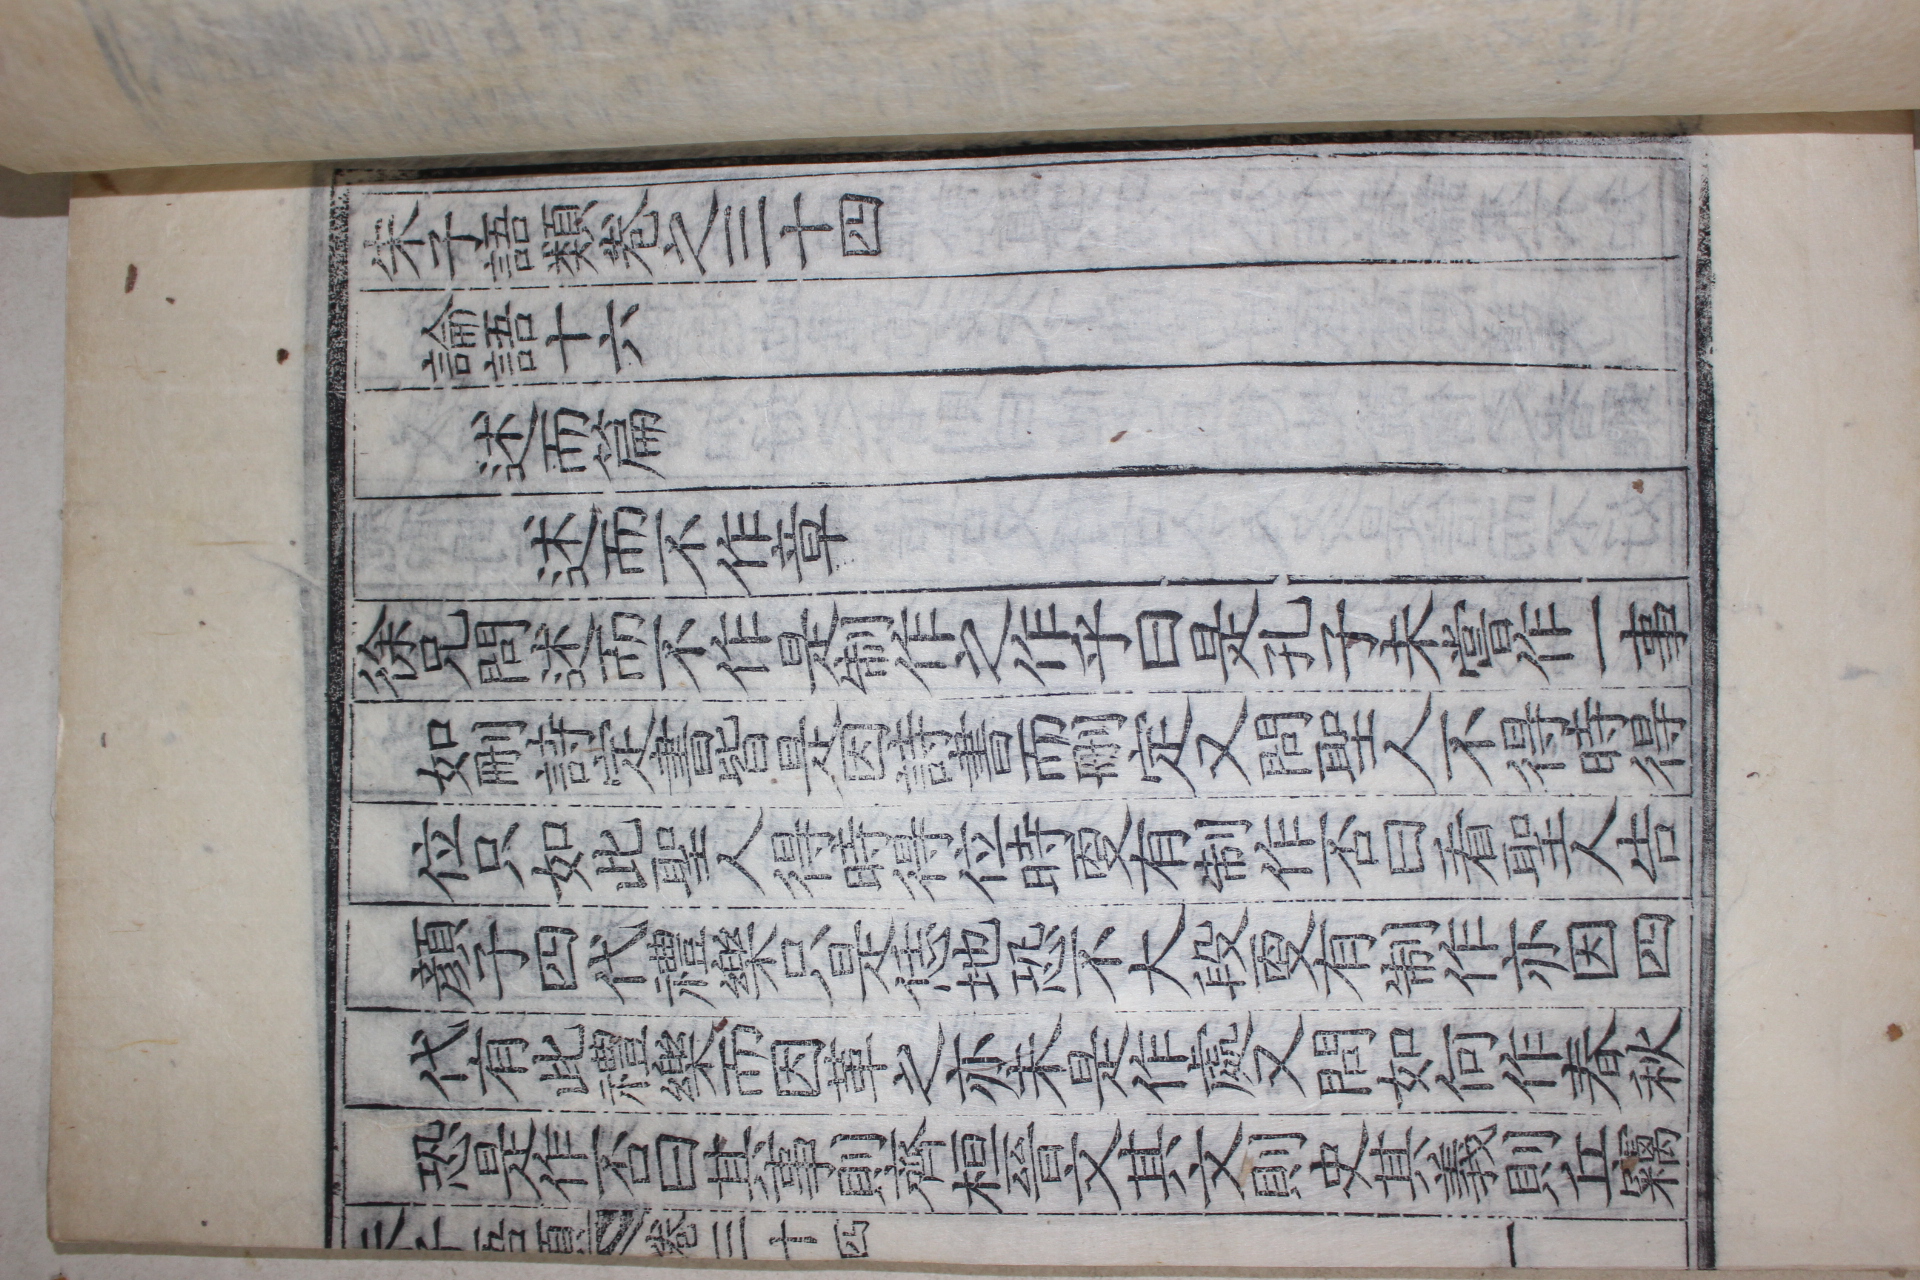 朱子語類卷之三十四
論語十六
述而篇
述而不作章
徐兄問述而不作是制作之作乎曰是孔子未嘗作一事
如刪詩定書皆是因詩書而刪定又問聖人不得時得
位只如此聖人得時得位時更有制作否曰看聖人告
顏子四代禮樂只是恁地恐不大段更有制作亦因四
代有此禮樂而因革之亦未是作處又問如何作春秋
恐是作否曰其事則齊桓晉文其文則史其義則丘竊
朱子語類 卷三十四 一